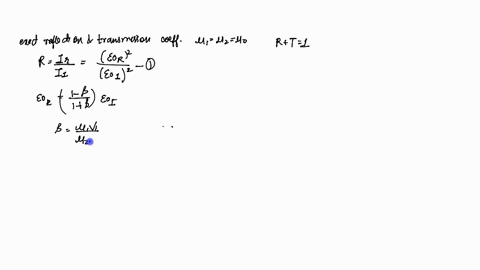 exect reflection & transmission coeff. μ₁ = μ₂ = μ0 R+T=1
R = I_R / I_I = (E0_R)² / (E0_I)² — ①
E0_R = ((1-β)/(1+β)) E0_I
β = μ₁V₁ / μ₂